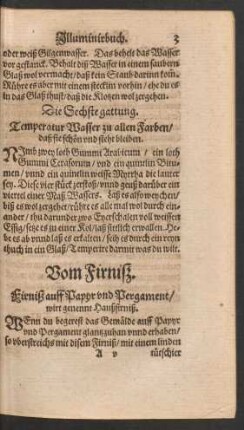 Illuminierbuch. 3
oder weiß Gilgenwasser. Das behelt das Wasser
vor gestanck. Behalt diß Wasser in einem saubern
Glaß wol vermacht/ daß kein Staub darinn kom̃.
Rühre es aber mit einem stecklin vorhin/ ehe du es
in das Glaß thust/ daß die Klotzen wol zergehen.
Die Sechste gattung.
Temperatur Wasser zu allen Farben/
daß sie schön vnd steht bleiben.
NImb zwey loth Gummi Arabicum / ein loth
Gummi Cerasorum/ vnd ein quintlein
vnnd ein quintlein weisse Myrrha die lauter
sey. Diese vier stück zerstoß/ vnnd geuß darüber ein
viertel einer Maß Wassers. Laß es also weychen/
biß es wol zergehet/ rührt es alle mal wol durch ein-
ander/ thu darunder zwo Eyerschalen voll weissen
Essig/ setz es zu einer Kol/ laß sittlich erwallen. He-
be es ab vnnd laß es erkalten/ seih es durch ein reyn
thuch in ein Glaß/ Temperier darmit was du wilt.
Vom Firniß.
Firniß auff Papyr vnd Pergament/
wirt genennt Haußfirniß.
WEnn du begerest das Gemälde auff Papyr
vnd Pergament glantz zuhan vnnd erhaben/
so vberstreichs mit disem Firniß/ mit einem linden
A v